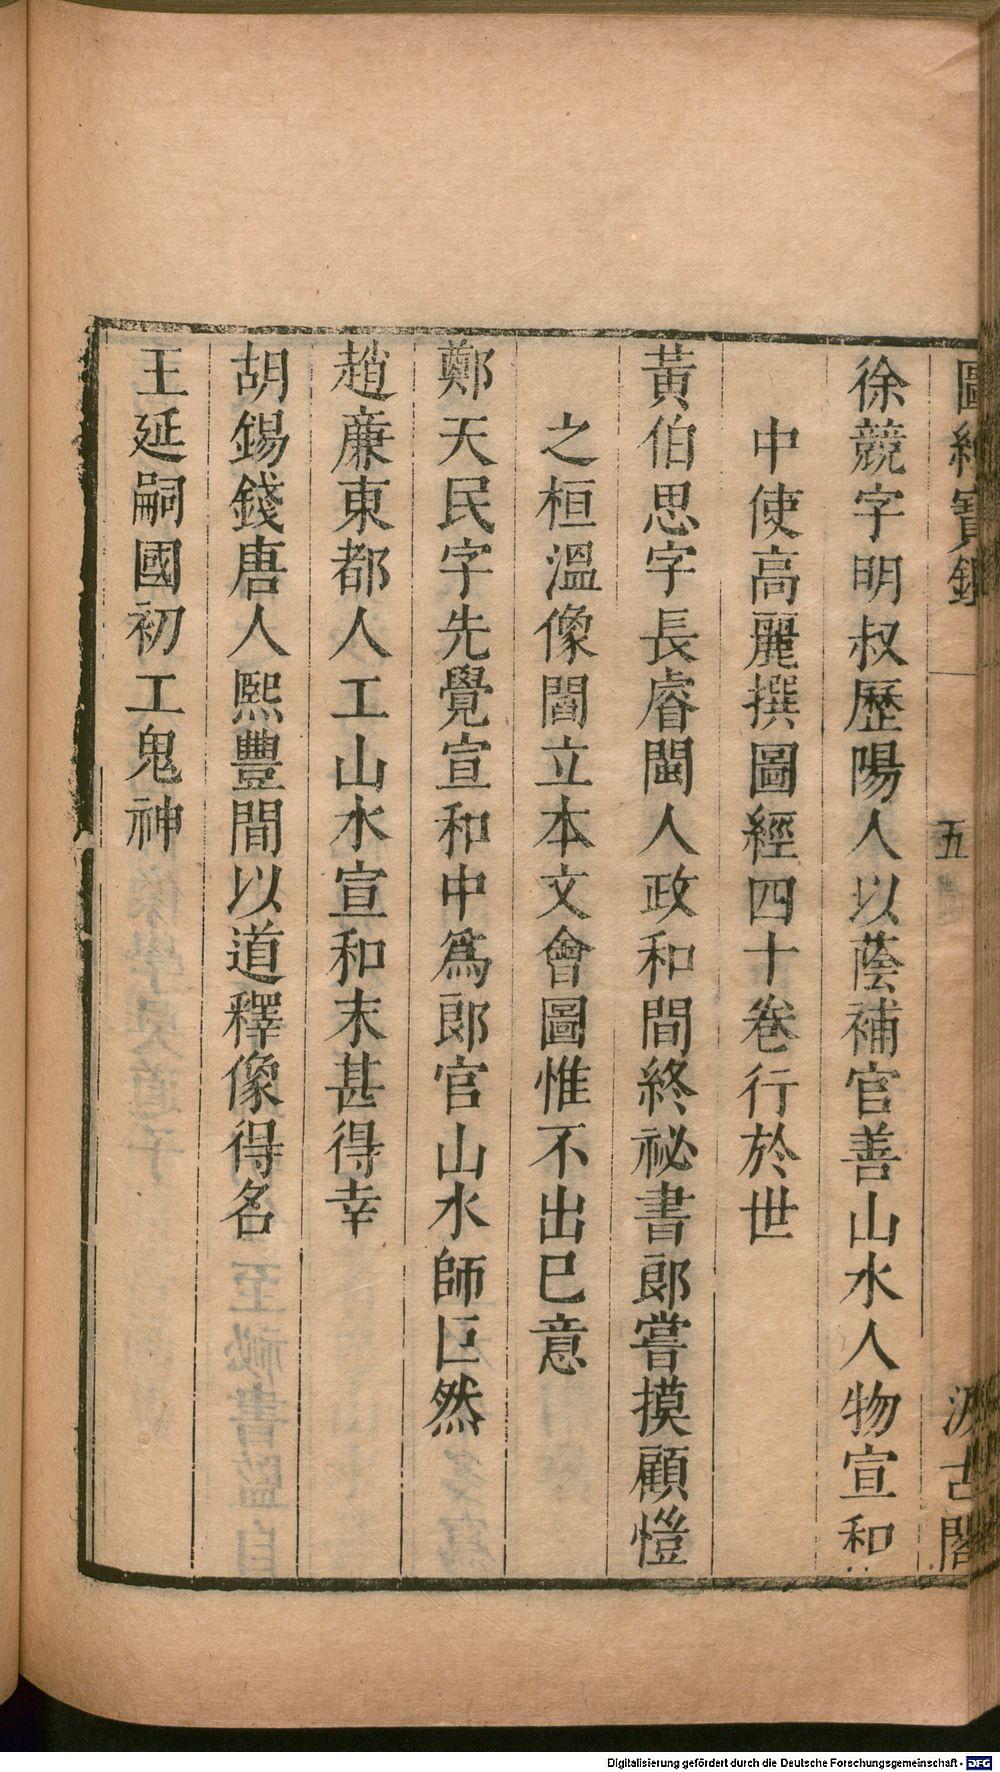 圖繪寶鑑
五
汲古閣
徐競字明叔歷陽人以蔭補官善山水人物宣和
中使高麗撰圖經四十卷行於世
黃伯思字長睿閩人政和間終祕書郎嘗摸顧愷
之桓溫像閻立本文會圖惟不出已意
鄭天民字先覺宣和中爲郎官山水師巨然
趙廉東都人工山水宣和末甚得幸
胡錫錢唐人熙豐間以道釋像得名
王延嗣國初工鬼神
Digitalisierung gefördert durch die Deutsche Forschungsgemeinschaft - DFG